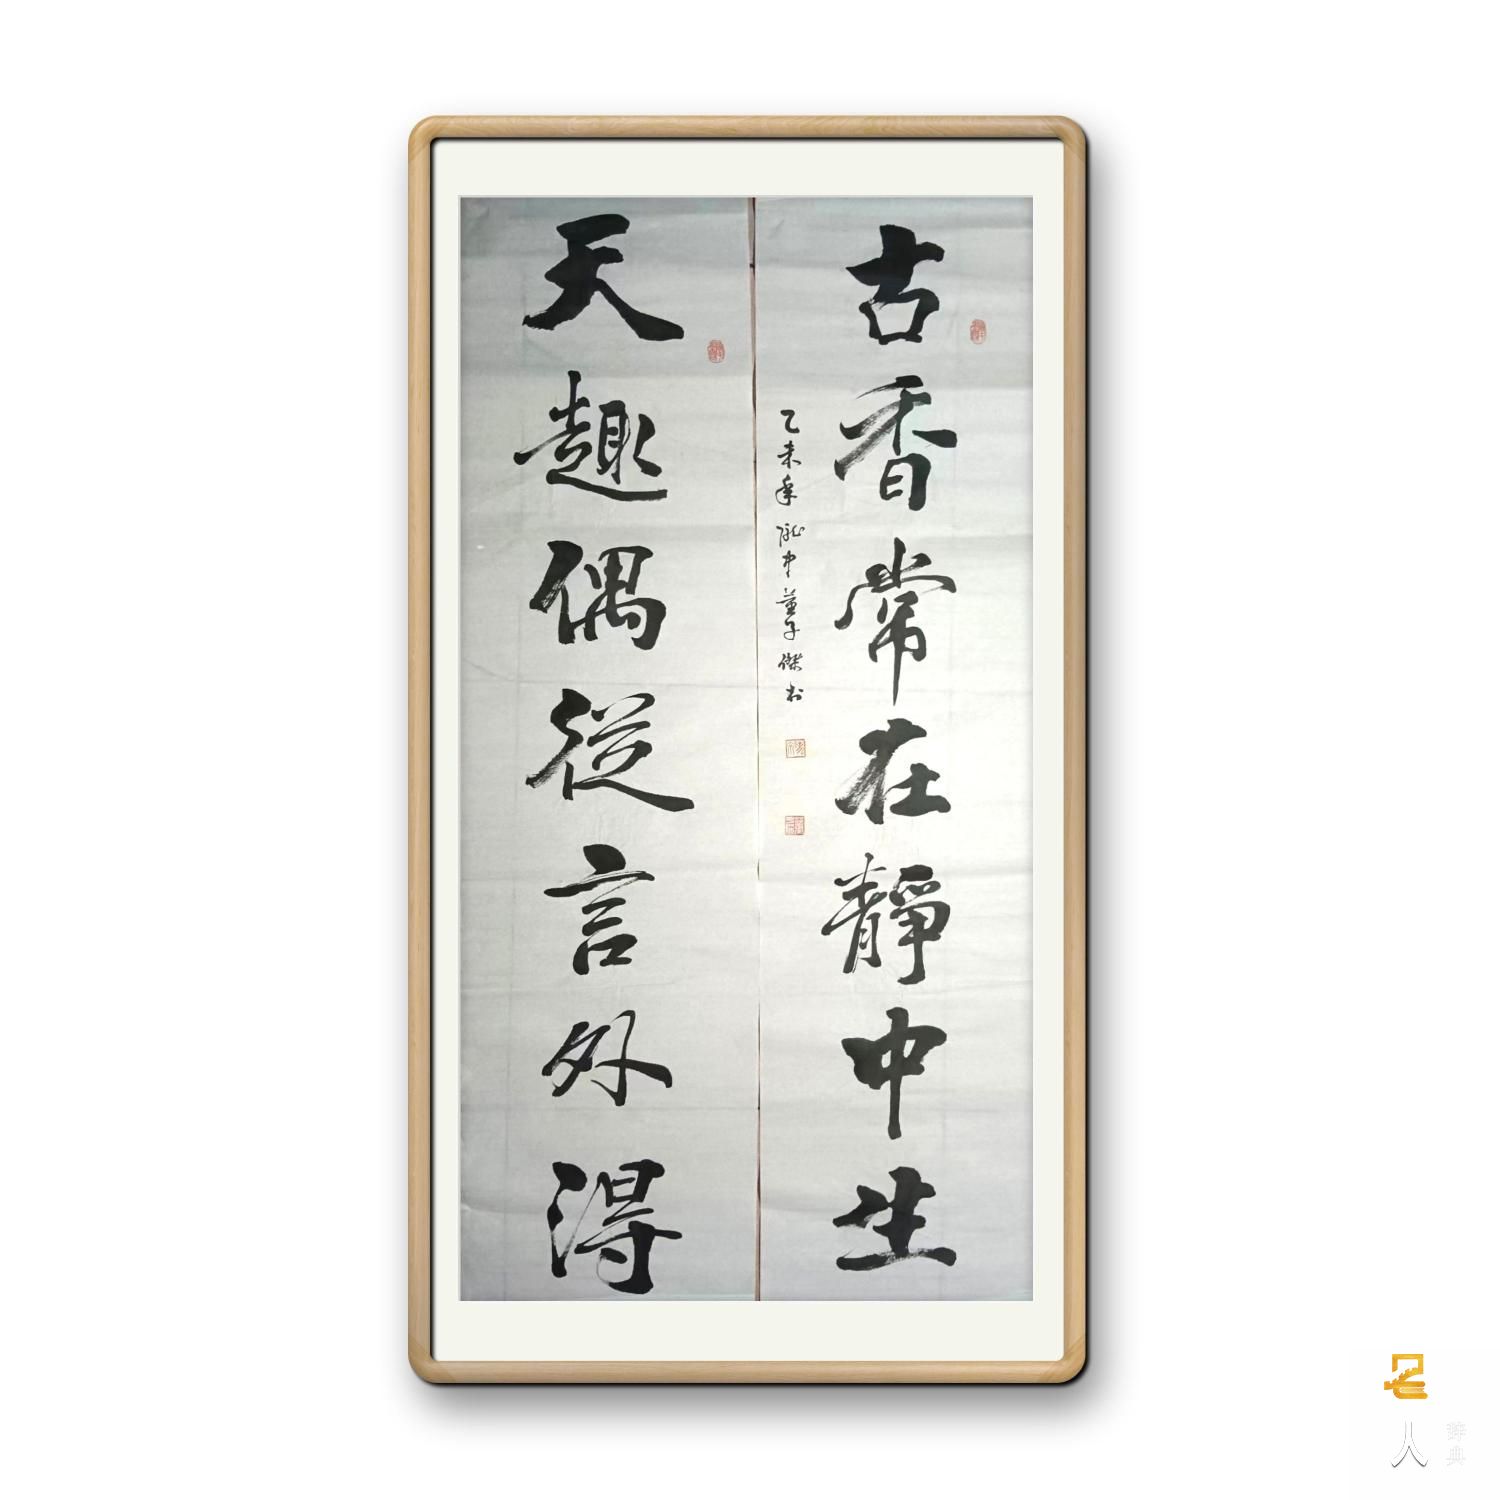 古香常在靜中生
乙未年隴中董子傑書
天趣偶從言外得
人
辞典